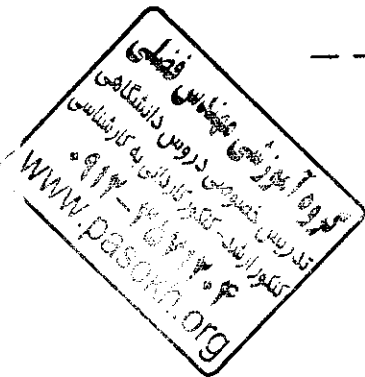 گروه آموزشی مهندس فضلی
تدریس خصوصی دروس دانشگاهی
کنکور ارشد - کنکور کاردانی به کارشناسی
www.pasokh.org